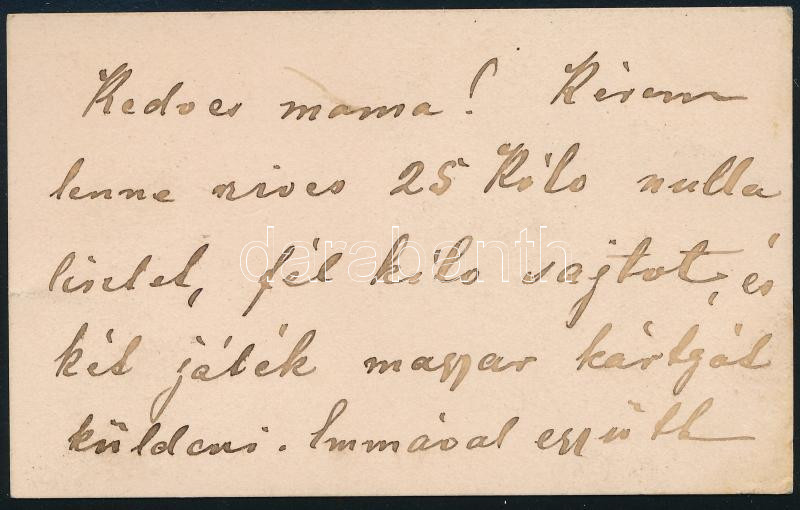 Kedves mama! Kérem
lenne szives 25 Kiló nulla
lisztet, fél kiló sajtot, és
két játék magyar kártyát
küldeni. Immával együtt
darabanth.com